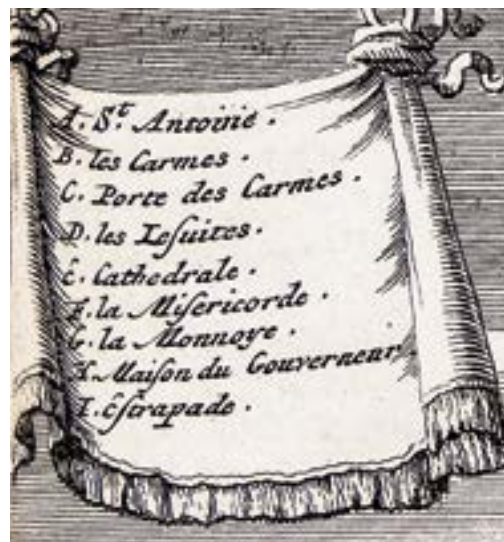 A. S.t Antoine.
B. les Carmes.
C. Porte des Carmes.
D. les Iesuites.
E. Cathedrale.
F. la Misericorde.
G. la Monnoye.
H. Maison du Gouverneur.
I. Estrapade.